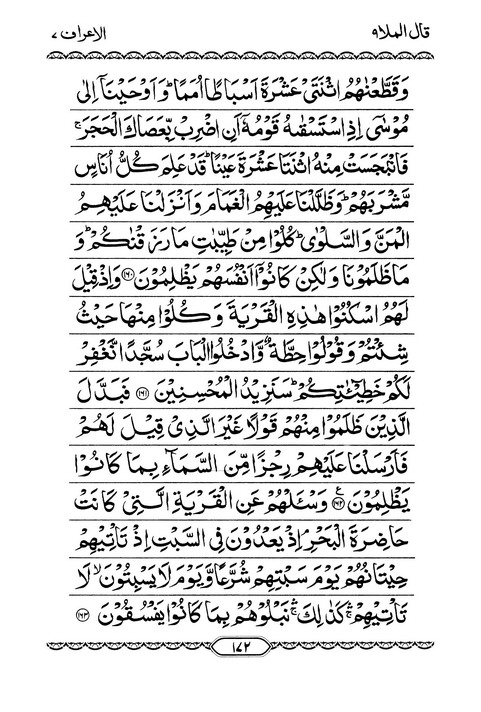 قال الملا۹ الاعراف ۷
وَقَطَّعْنٰهُمُ اثْنَتَیْ عَشْرَةَ اَسْبَاطًا اُمَمًا ؕ وَ اَوْحَیْنَاۤ اِلٰی
مُوْسٰۤی اِذِ اسْتَسْقٰىهُ قَوْمُهٗۤ اَنِ اضْرِبْ بِّعَصَاكَ الْحَجَرَ ۚ
فَانْۢبَجَسَتْ مِنْهُ اثْنَتَا عَشْرَةَ عَیْنًا ؕ قَدْ عَلِمَ كُلُّ اُنَاسٍ
مَّشْرَبَهُمْ ؕ وَظَلَّلْنَا عَلَیْهِمُ الْغَمَامَ وَ اَنْزَلْنَا عَلَیْهِمُ
الْمَنَّ وَ السَّلْوٰی ؕ كُلُوْا مِنْ طَیِّبٰتِ مَا رَزَقْنٰكُمْ ؕ وَ
مَا ظَلَمُوْنَا وَلٰكِنْ كَانُوْۤا اَنْفُسَهُمْ یَظْلِمُوْنَ ﴿۱۶۰﴾ وَ اِذْ قِیْلَ
لَهُمُ اسْكُنُوْا هٰذِهِ الْقَرْیَةَ وَ كُلُوْا مِنْهَا حَیْثُ
شِئْتُمْ وَ قُوْلُوْا حِطَّةٌ وَّادْخُلُوا الْبَابَ سُجَّدًا نَّغْفِرْ
لَكُمْ خَطِیْٓـٰٔتِكُمْ ؕ سَنَزِیْدُ الْمُحْسِنِیْنَ ﴿۱۶۱﴾ فَبَدَّلَ
الَّذِیْنَ ظَلَمُوْا مِنْهُمْ قَوْلًا غَیْرَ الَّذِیْ قِیْلَ لَهُمْ
فَاَرْسَلْنَا عَلَیْهِمْ رِجْزًا مِّنَ السَّمَآءِ بِمَا كَانُوْا
یَظْلِمُوْنَ ﴿۱۶۲﴾ ع وَسْـَٔلْهُمْ عَنِ الْقَرْیَةِ الَّتِیْ كَانَتْ
حَاضِرَةَ الْبَحْرِ ۘ اِذْ یَعْدُوْنَ فِی السَّبْتِ اِذْ تَاْتِیْهِمْ
حِیْتَانُهُمْ یَوْمَ سَبْتِهِمْ شُرَّعًا وَّ یَوْمَ لَا یَسْبِتُوْنَ ۙ لَا
تَاْتِیْهِمْ ۛۚ كَذٰلِكَ ۛۚ نَبْلُوْهُمْ بِمَا كَانُوْا یَفْسُقُوْنَ ﴿۱۶۳﴾
۱۷۲